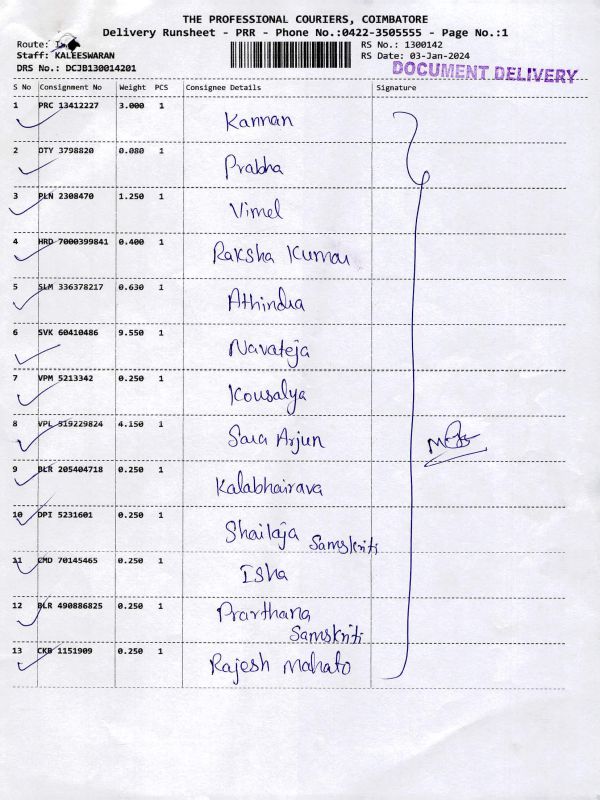 THE PROFESSIONAL COURIERS, COIMBATORE
Delivery Runsheet - PRR - Phone No.:0422-3505555 - Page No.:1
Route: RS No.: 1300142
Staff: KALEESWARAN RS Date: 03-Jan-2024
DRS No.: DCJB130014201 DOCUMENT DELIVERY
S No Consignment No Weight PCS Consignee Details Signature
1 PRC 13412227 3.000 1 Kannan
2 DTY 3798820 0.080 1 Prabha
3 PLN 2308470 1.250 1 Vimel
4 HRD 7000399841 0.400 1 Raksha Kumar
5 SLM 336378217 0.630 1 Athindra
6 SVK 60410486 9.550 1 Navateja
7 VPM 5213342 0.250 1 Kousalya
8 VPL 519229824 4.150 1 Sara Arjun
9 BLR 205404718 0.250 1 Kalabhairava
10 DPI 5231601 0.250 1 Shailaja Samskriti
11 CMD 70145465 0.250 1 Isha
12 BLR 490886825 0.250 1 Prarthana
Samskriti
13 CKB 1151909 0.250 1 Rajesh Mahato